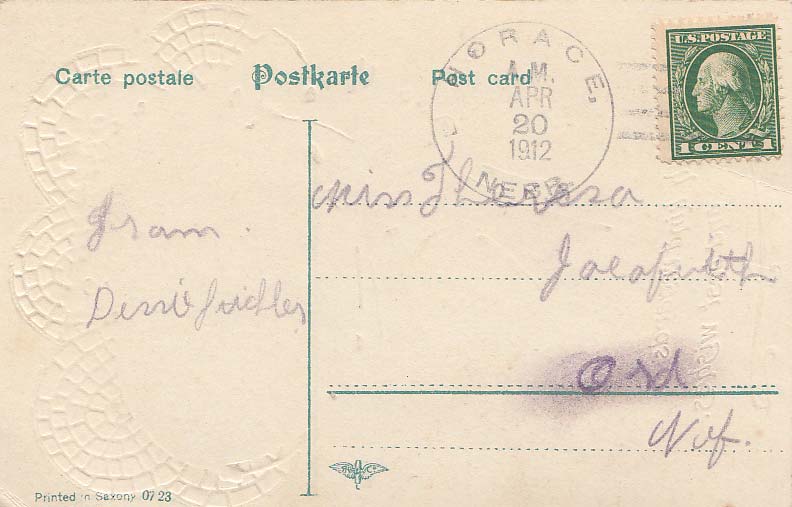 Carte postale Postkarte Post card
HORACE,
A.M.
APR
20
1912
NEBR.
U.S. POSTAGE
1 CENT 1
Miss Theresa
From.
Ord
Neb.
Printed in Saxony 0723